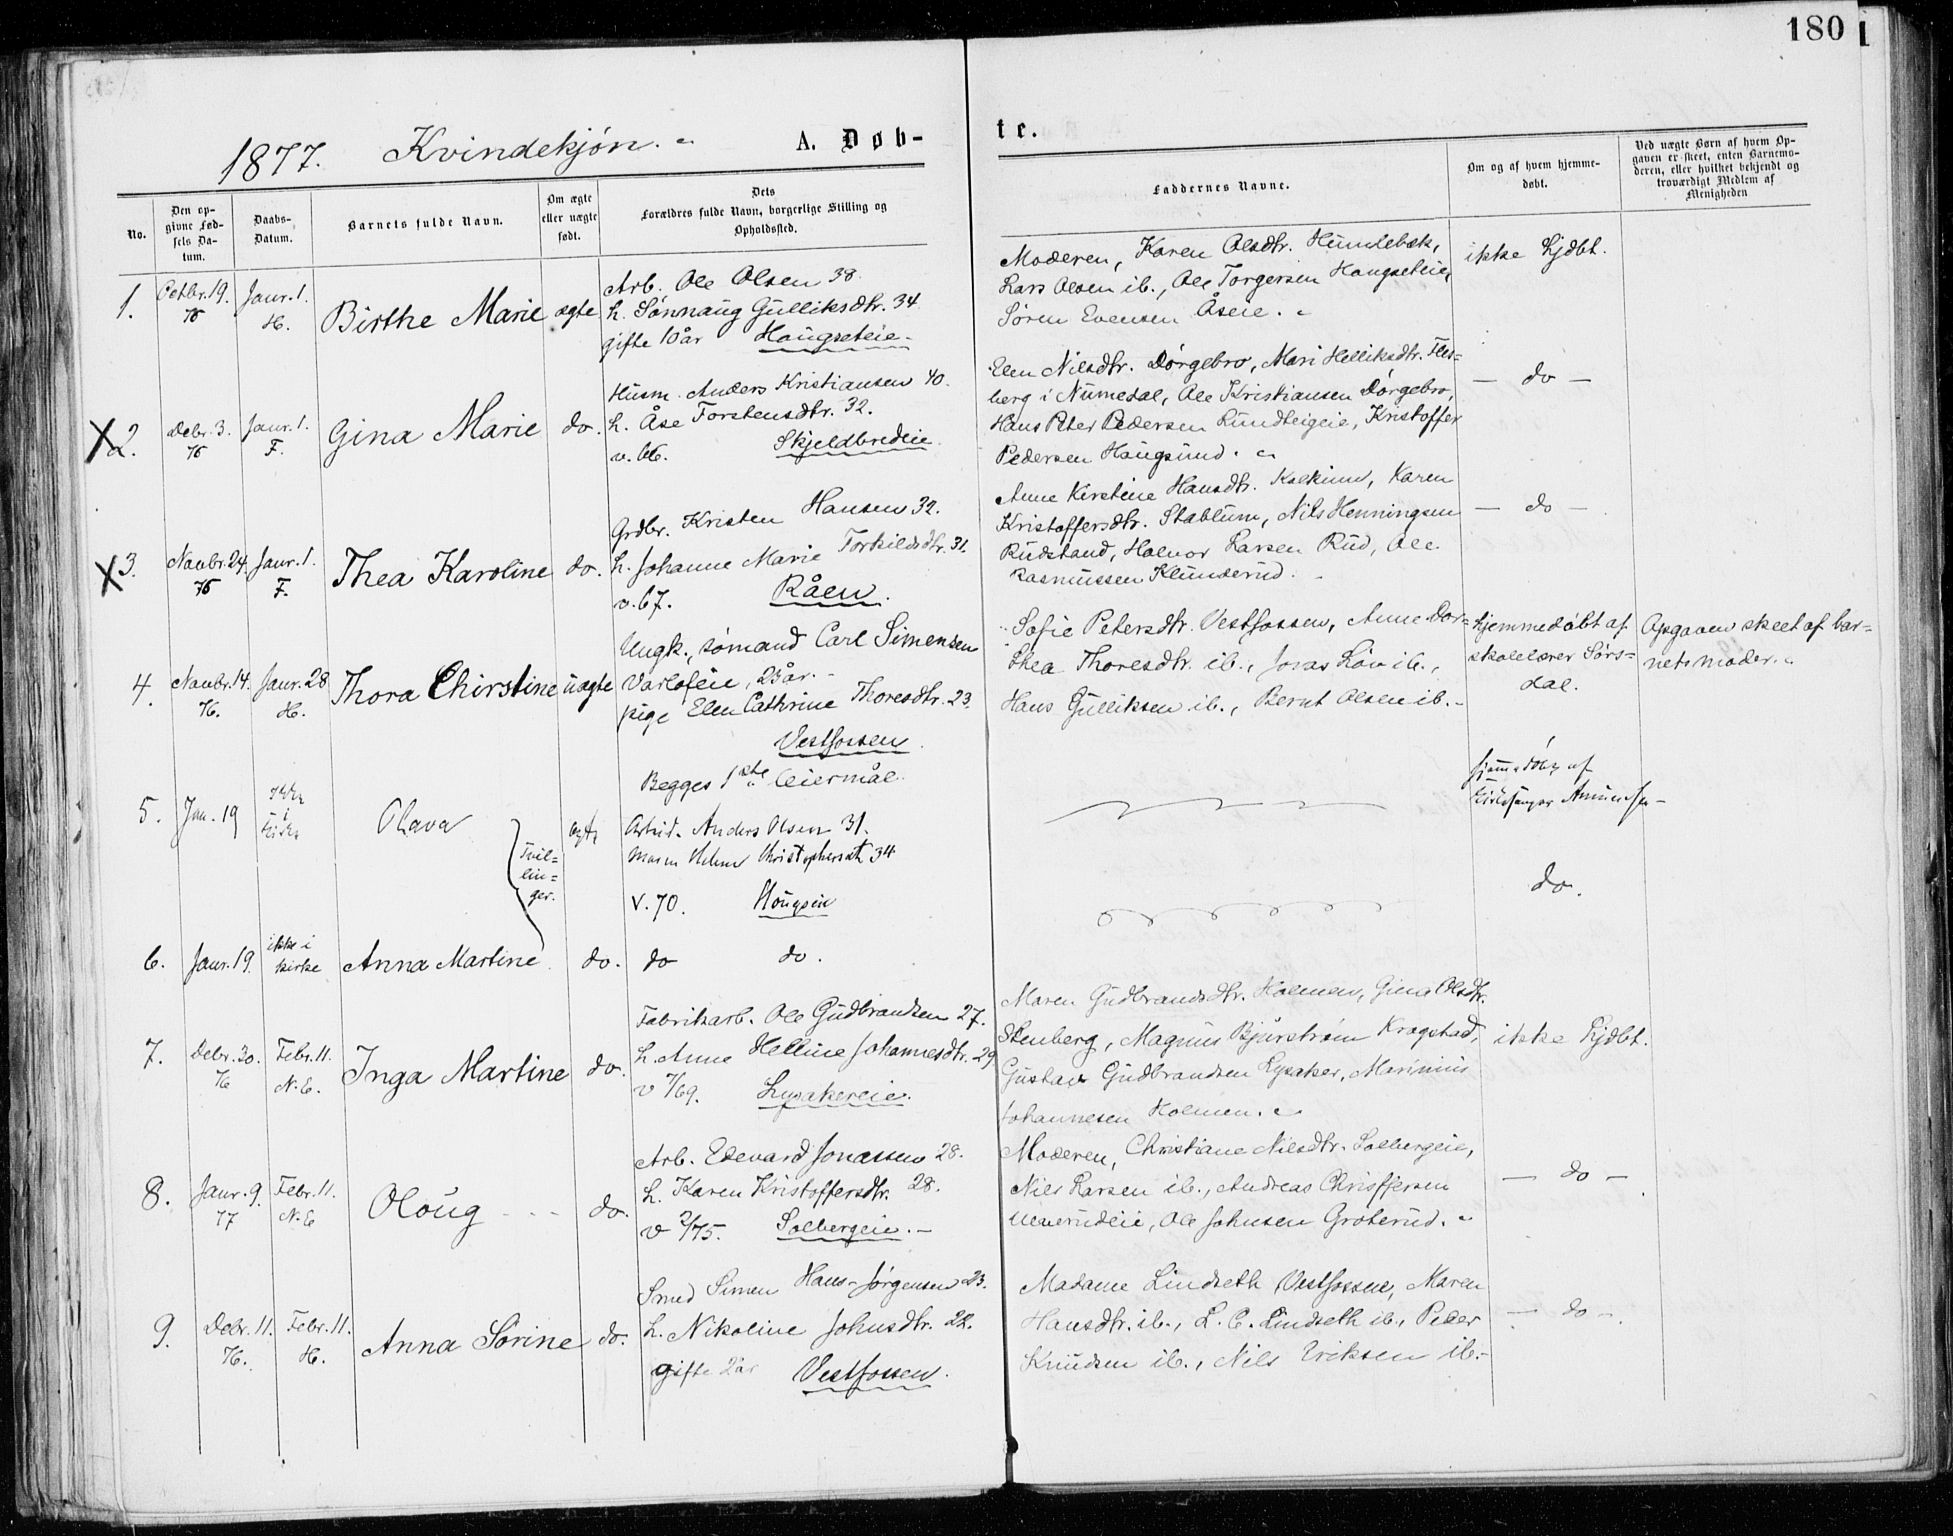 180
1877. Kvindekjøn.
A. Døb-
te.
No.
Den op-
givne Fød-
sels Da-
tum.
Daabs-
Datum.
Barnets fulde Navn.
Om ægte
eller uægte
født.
Dets
Forældres fulde Navn, borgerlige Stilling og
Opholdssted.
Faddernes Navne.
Om og af hvem hjemme-
døbt.
Ved uægte Børn af hvem Op-
gaven er skeet, enten Barnemo-
deren, eller hvilket bekjendt og
troværdigt Medlem af
Menigheden
1.
Octbr. 19.
76
Janr. 1.
H.
Birthe Marie
ægte
Arb. Ole Olsen 38.
h. Sønnaug Gulliksdtr. 34
gifte 10 år Haugseteie
Moderen, Karen Olsdtr. Humlebæk,
Lars Olsen ib., Ole Torgersen Haugseteie,
Søren Evensen Åseie.
ikke hjdbt.
X 2.
Debr. 3.
76
Janr. 1.
F.
Gina Marie
do.
Husm. Anders Kristiansen 40.
h. Åse Torstensdtr. 32.
v. 66. Skjeldbredeie
Elen Nilsdtr. Dørgebro, Mari Helliksdtr. Fles=
berg i Numedal, Ole Kristiansen Dørgebro,
Hans Peter Pedersen Lundteigeie, Kristoffer
Pedersen Haugsund.
— do —
X 3.
Novbr. 24.
76
Janr. 1.
F.
Thea Karoline
do.
Grdbr. Kristen Hansen 32.
h. Johanne Marie Torkildsdtr. 31.
v. 67. Råen.
Anne Kirstine Hansdtr. Kolkinn, Karen
Kristoffersdtr. Stablum, Nils Henningsen
Rudstand, Halvor Larsen Rud, Ole
Rasmussen Klunderud.
— do —
4.
Novbr. 14.
76.
Janr. 28
H.
Thora Chirstine
uægte
Ungk., sømand Carl Simensen
Varlofeie, 23 år.
pige Elen Cathrine Thoresdtr. 23.
Vestfossen.
Begges 1ste leiermål.
Sofie Petersdtr. Vestfossen, Anne Dor=
thea Thoresdtr. ib., Jonas Løv ib.,
Hans Gulliksen ib., Bernt Olsen ib.
hjemmedøbt af
skolelærer Sørs=
dal.
Opgaven skeet af bar=
nets moder.
5.
Jan. 19
ikke
i
Kirke
Olava
Tvil=
lin=
ger.
ægte
Arbeid. Anders Olsen 31.
Maren Helene Christophersdt 34
v. 70. Hougsein
hjemmedøbt af
Kirkesanger Amundsen
6.
Janr. 19.
ikke i
kirke
Anna Martine
do.
do do.
do.
7.
Debr. 30.
76
Febr. 11.
N.E.
Inga Martine
do.
Fabrikarb. Ole Gudbrandsen 27.
h. Anne Helline Johannesdtr. 29
v 7/69. Lysakereie.
Maren Gudbrandsdtr. Holmen, Gina Olsdtr.
Stenberg, Magnus Bjurstrøm Krogstad,
Gustav Gudbrandsen Lysaker, Marinius
Johannesen Holmen.
ikke hjdbt.
8.
Janr. 9.
77
Febr. 11.
N.E
Oloug
do.
Arb. Edevard Jonassen 28.
h. Karen Kristoffersdtr. 28.
v 2/75. Solbergeie.
Moderen, Christiane Nilsdtr. Solbergeie,
Nils Larsen ib., Andreas Chrisfjersen
Ulverudeie, Ole Johnsen Groterud.
— do —
9.
Debr. 11.
76.
Febr. 11.
H.
Anna Sørine
do.
Smed Simen Hans-Jørgensen 23.
h. Nikoline Johnsdtr. 22.
gifte 2 år Vestfossen.
Madame Lindseth Vestfossen, Maren
Hansdtr. ib., L. C. Lindseth ib., Peder
Knudsen ib., Nils Eriksen ib.
— do —